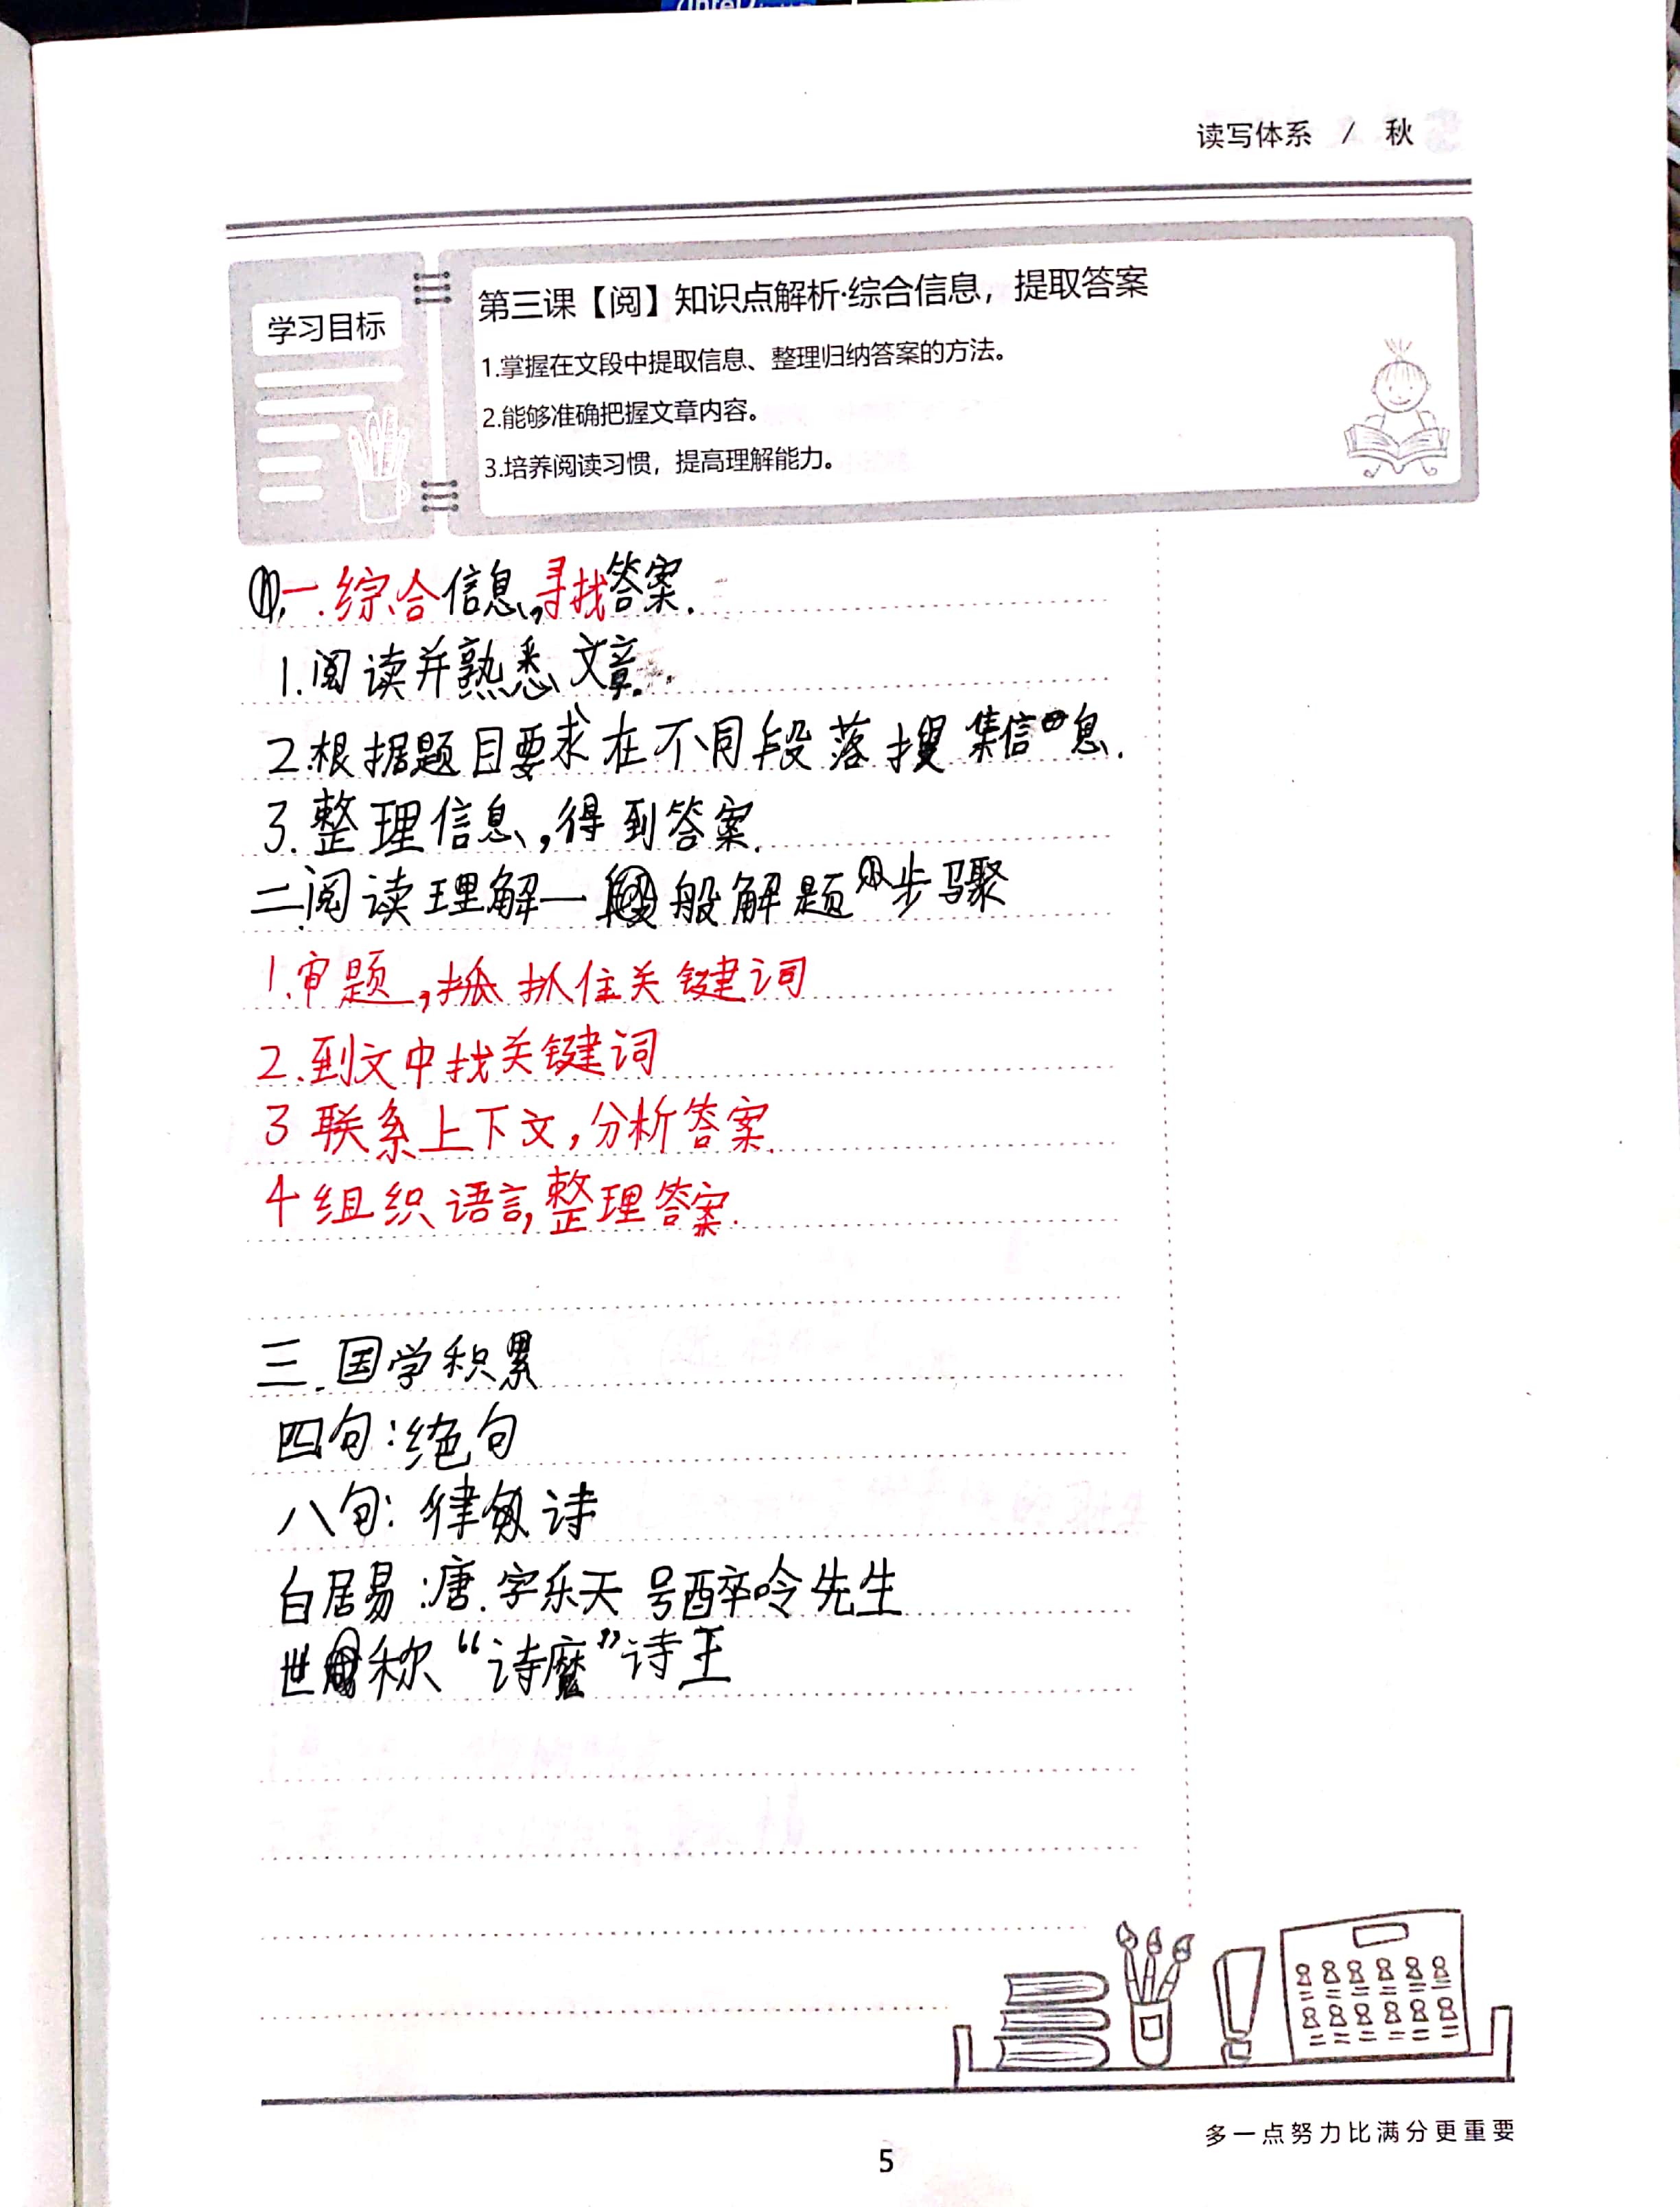 intel
读写体系 / 秋
学习目标
第三课【阅】知识点解析·综合信息，提取答案
1.掌握在文段中提取信息、整理归纳答案的方法。
2.能够准确把握文章内容。
3.培养阅读习惯，提高理解能力。
一.综合信息,寻找答案.
1.阅读并熟悉文章.
2.根据题目要求在不同段落搜集信息.
3.整理信息,得到答案.
二.阅读理解一般解题步骤
1.审题,抓住关键词
2.到文中找关键词
3 联系上下文,分析答案.
4 组织语言,整理答案.
三.国学积累
四句:绝句
八句:律诗
白居易:唐.字乐天 号醉呤先生
世称“诗魔”诗王
多一点努力比满分更重要
5